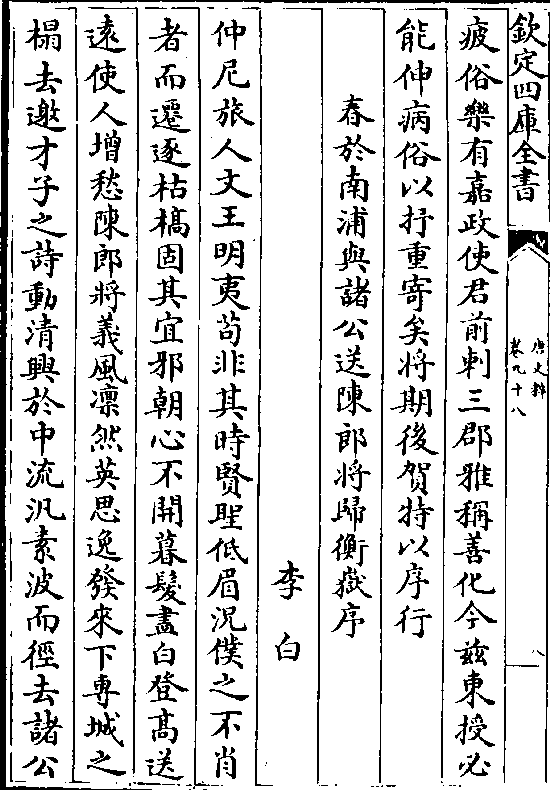 欽定四庫全書
唐文粹
卷九十八
八
疲俗樂有嘉政使君前刺三郡雅稱善化今兹東授必
能伸病俗以抒重寄矣將期後賀特以序行
春於南浦與諸公送陳郎將歸衡嶽序
李白
仲尼旅人文王明夷苟非其時賢聖低眉況僕之不肖
者而遷逐枯槁固其宜邪朝心不開暮髮盡白登髙送
逺使人增愁陳郎將義風凛然英思逸發來下專城之
榻去邀才子之詩動清興於中流汎素波而徑去諸公